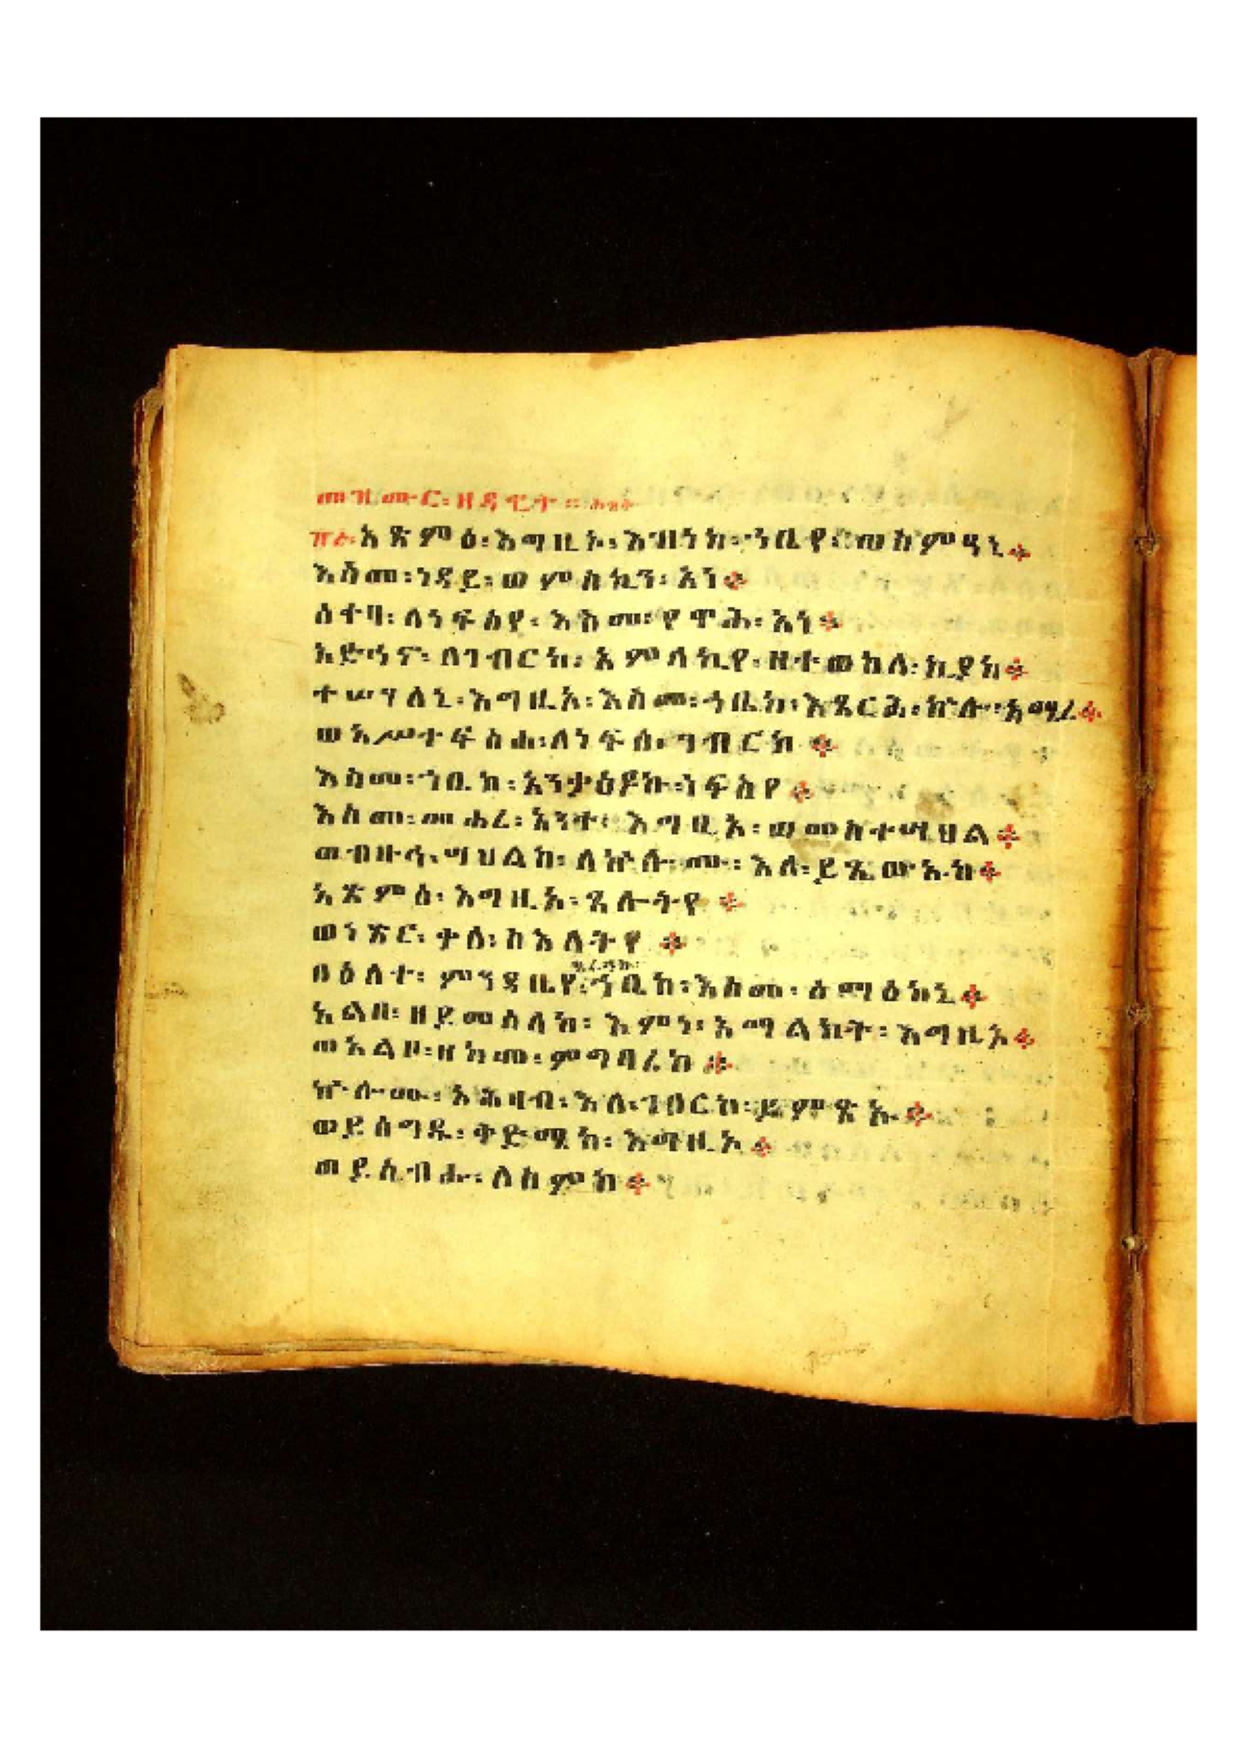 መዝሙር፡ ዘዳዊት ።
አጽምዕ፡ እግዚኦ፡ እዝነከ፡ ኀቤየ፡ ወስምዓኒ ።
እስመ፡ ነዳይ፡ ወምስኪን፡ አነ ።
ዕቀባ፡ ለነፍስየ፡ እስመ፡ የዋህ፡ አነ ።
አድኅኖ፡ ለገብርከ፡ አምላኪየ፡ ዘተወከለ፡ ኪያከ ።
ተሠሃለኒ፡ እግዚኦ፡ እስመ፡ ኀቤከ፡ እጼርሕ፡ ኵሎ፡ አሚረ ።
ወአሥተፍስሐ፡ ለነፍሰ፡ ገብርከ ።
እስመ፡ ኀቤከ፡ አንቃዕዶኩ፡ ነፍስየ ።
እስመ፡ መሐሪ፡ አንተ፡ እግዚኦ፡ ወመስተሣህል ።
ወብዙኅ፡ ሣህልከ፡ ለኵሎሙ፡ እለ፡ ይጼውዑከ ።
አጽምዕ፡ እግዚኦ፡ ጸሎትየ ።
ወነጽር፡ ቃለ፡ ስእለትየ ።
በዕለተ፡ ምንዳቤየ፡ ጸራኅኩ፡ ኀቤከ፡ እስመ፡ ሰማዕከኒ ።
አልቦ፡ ዘይመስለከ፡ እምነ፡ አማልክት፡ እግዚኦ ።
ወአልቦ፡ ዘከመ፡ ምግባሪከ ።
ኵሎሙ፡ አሕዛብ፡ እለ፡ ገበርከ፡ ይምጽኡ ።
ወይስግዱ፡ ቅድሜከ፡ እግዚኦ ።
ወይሴብሑ፡ ለስምከ ።